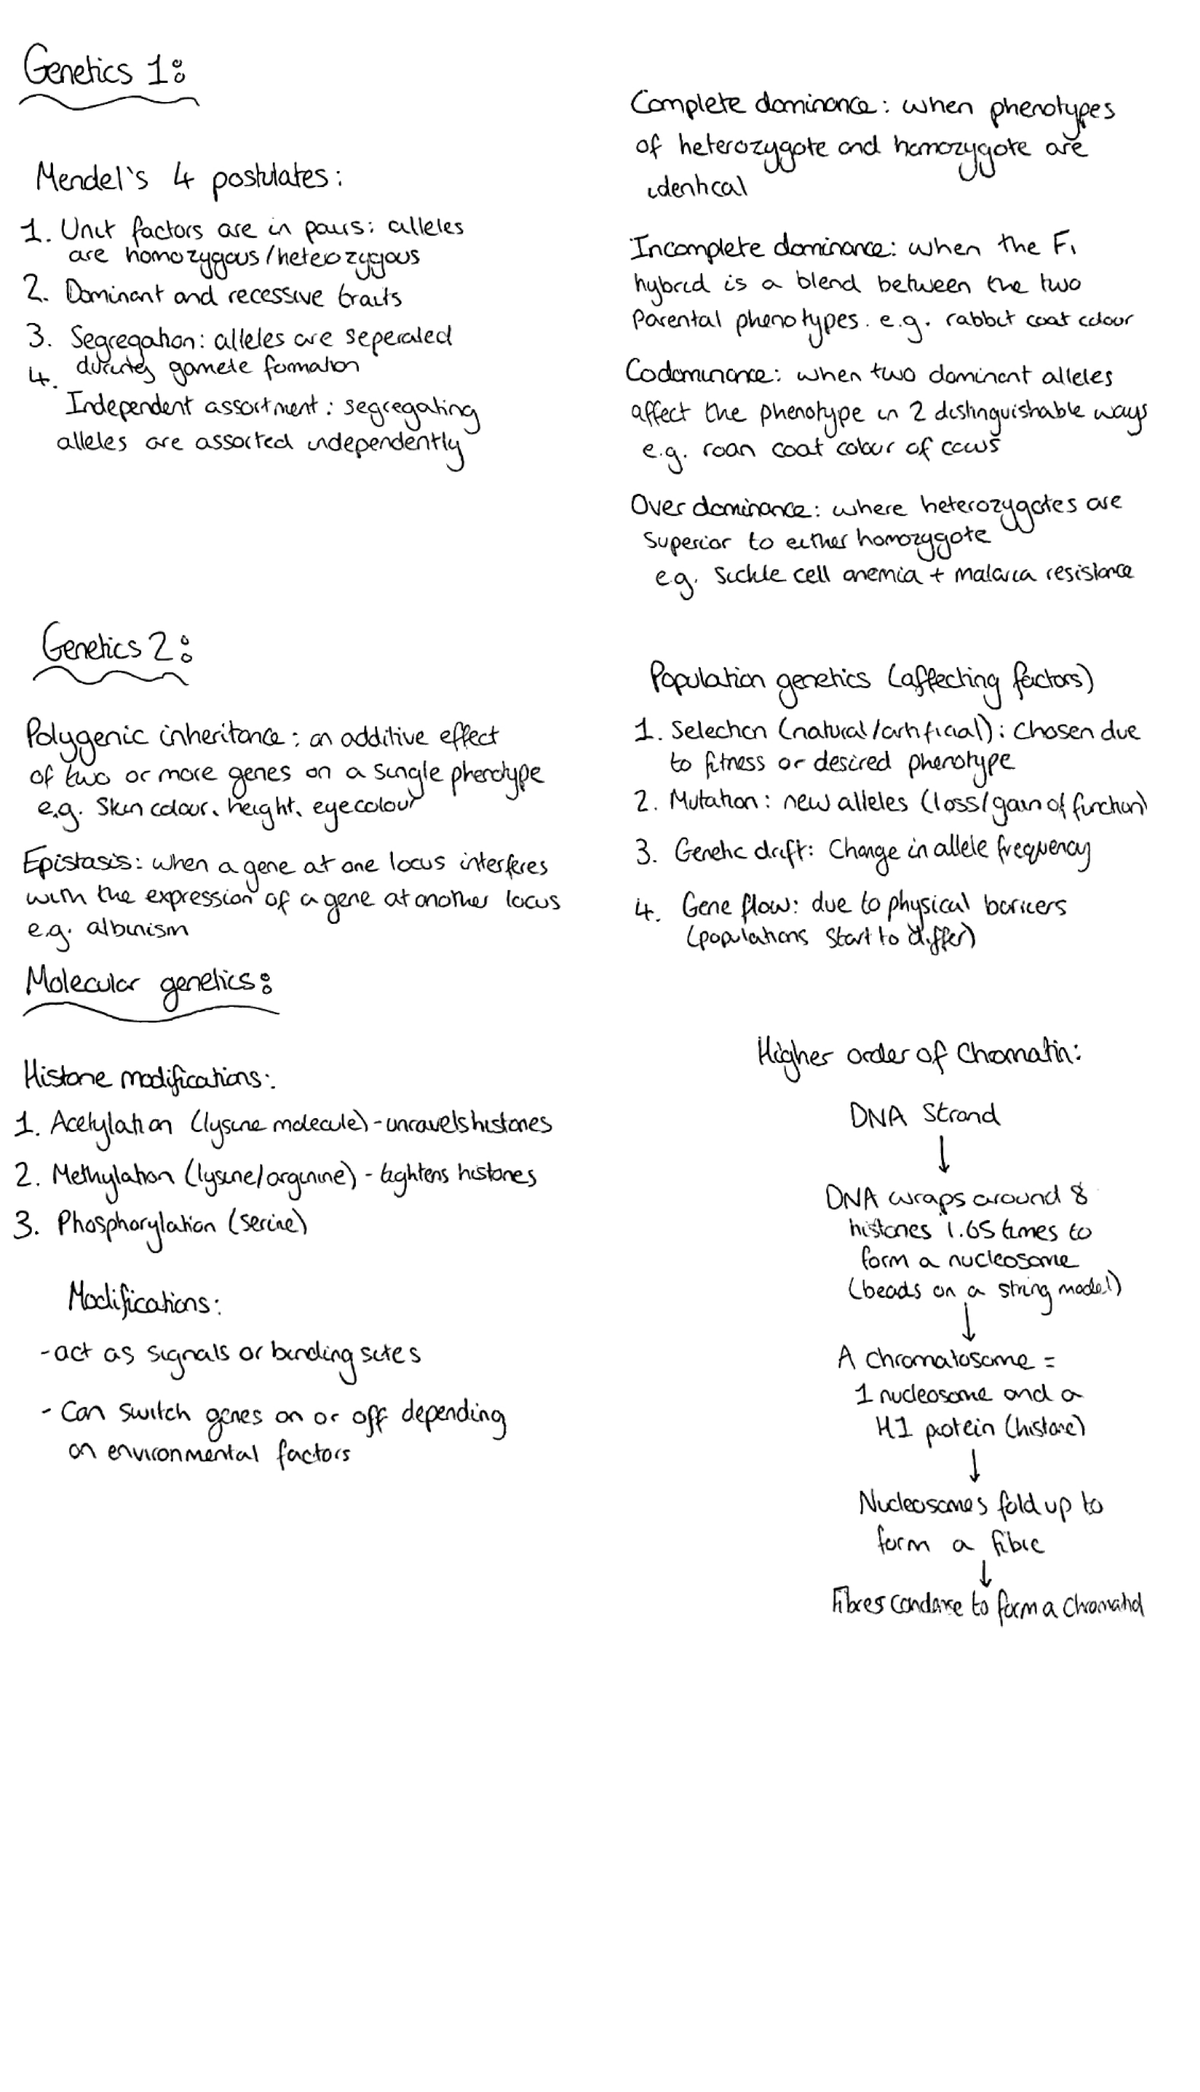 Genetics 1:
Mendel's 4 postulates:
1. Unit factors are in pairs: alleles
are homozygous/heterozygous
2. Dominant and recessive traits
3. Segregation: alleles are seperated
gamete formation
4.
Independent assortment: segregating
alleles are assorted independently
Complete dominance: when phenotypes
of heterozygote and homozygote are
identical
Incomplete dominance: when the F1
hybrid is a blend between the two
Parental phenotypes. e.g. rabbit coat colour
Codominance: when two dominant alleles
affect the phenotype in 2 distinguishable ways
e.g. roan coat colour of cows
Over dominance: where heterozygotes are
Superior to either homozygote
e.g. Sickle cell anemia + malaria resistance
Genetics 2:
Polygenic inheritance: an additive effect
of two or more genes on a single phenotype
e.g. Skin colour, height, eye colour
Epistasis: when a gene at one locus interferes
with the expression of a gene at another locus
e.g. albinism
Population genetics (affecting factors)
1. Selection (natural/artificial): Chosen due
to fitness or desired phenotype
2. Mutation: new alleles (loss/gain of function)
3. Genetic drift: Change in allele frequency
4. Gene flow: due to physical barriers
(populations start to differ)
Molecular genetics:
Histone modifications:
1. Acetylation (lysine molecule) - unravels histones
2. Methylation (lysine/arginine) - tightens histones
3. Phosphorylation (serine)
Modifications:
- act as signals or binding sites
- Can switch genes on or off depending
on environmental factors
Higher order of Chromatin:
DNA Strand
↓
DNA wraps around 8
histones 1.65 times to
form a nucleosome
(beads on a string model)
↓
A chromatosome =
1 nucleosome and a
H1 protein (histone)
↓
Nucleosomes fold up to
form a fibre
↓
Fibres condense to form a Chromatid